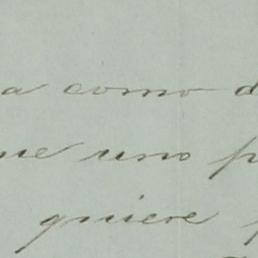 a como d
ue uno p
quiere p